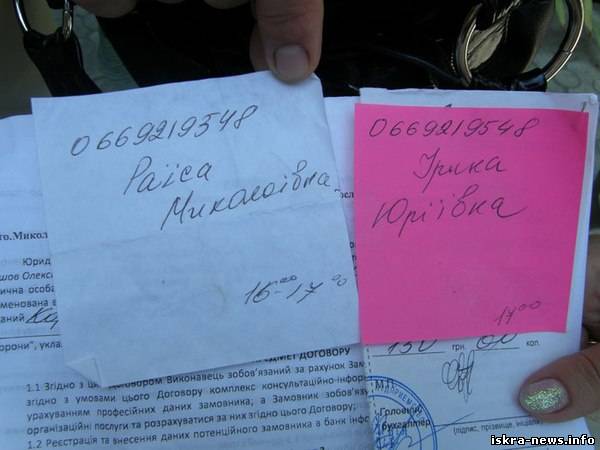 0669219548
Раїса
Миколаївна
16⁰⁰-17⁰⁰
0669219548
Ірина
Юріївна
17⁰⁰
то.Микол
Юрид
шов Олекс
ична особа
менована в
аний
орони", укла
ДМЕТ ДОГОВОРУ
1.1 Згідно з ц договором Виконавець зобов'язаний за рахунок Зам
згідно з умовами цього Договору комплекс консультаційно-інфор
урахуванням професійних даних замовника; а Замовник зобов'яз
організаційні послуги та розрахуватися за них згідно цього Договору;
1.2 Реєстрація та внесення даних потенційного замовника в банк інф
150 грн. 00 коп.
М.П.
Головний
бухгалтер
(підпис, прізвище, ініціали)
iskra-news.info